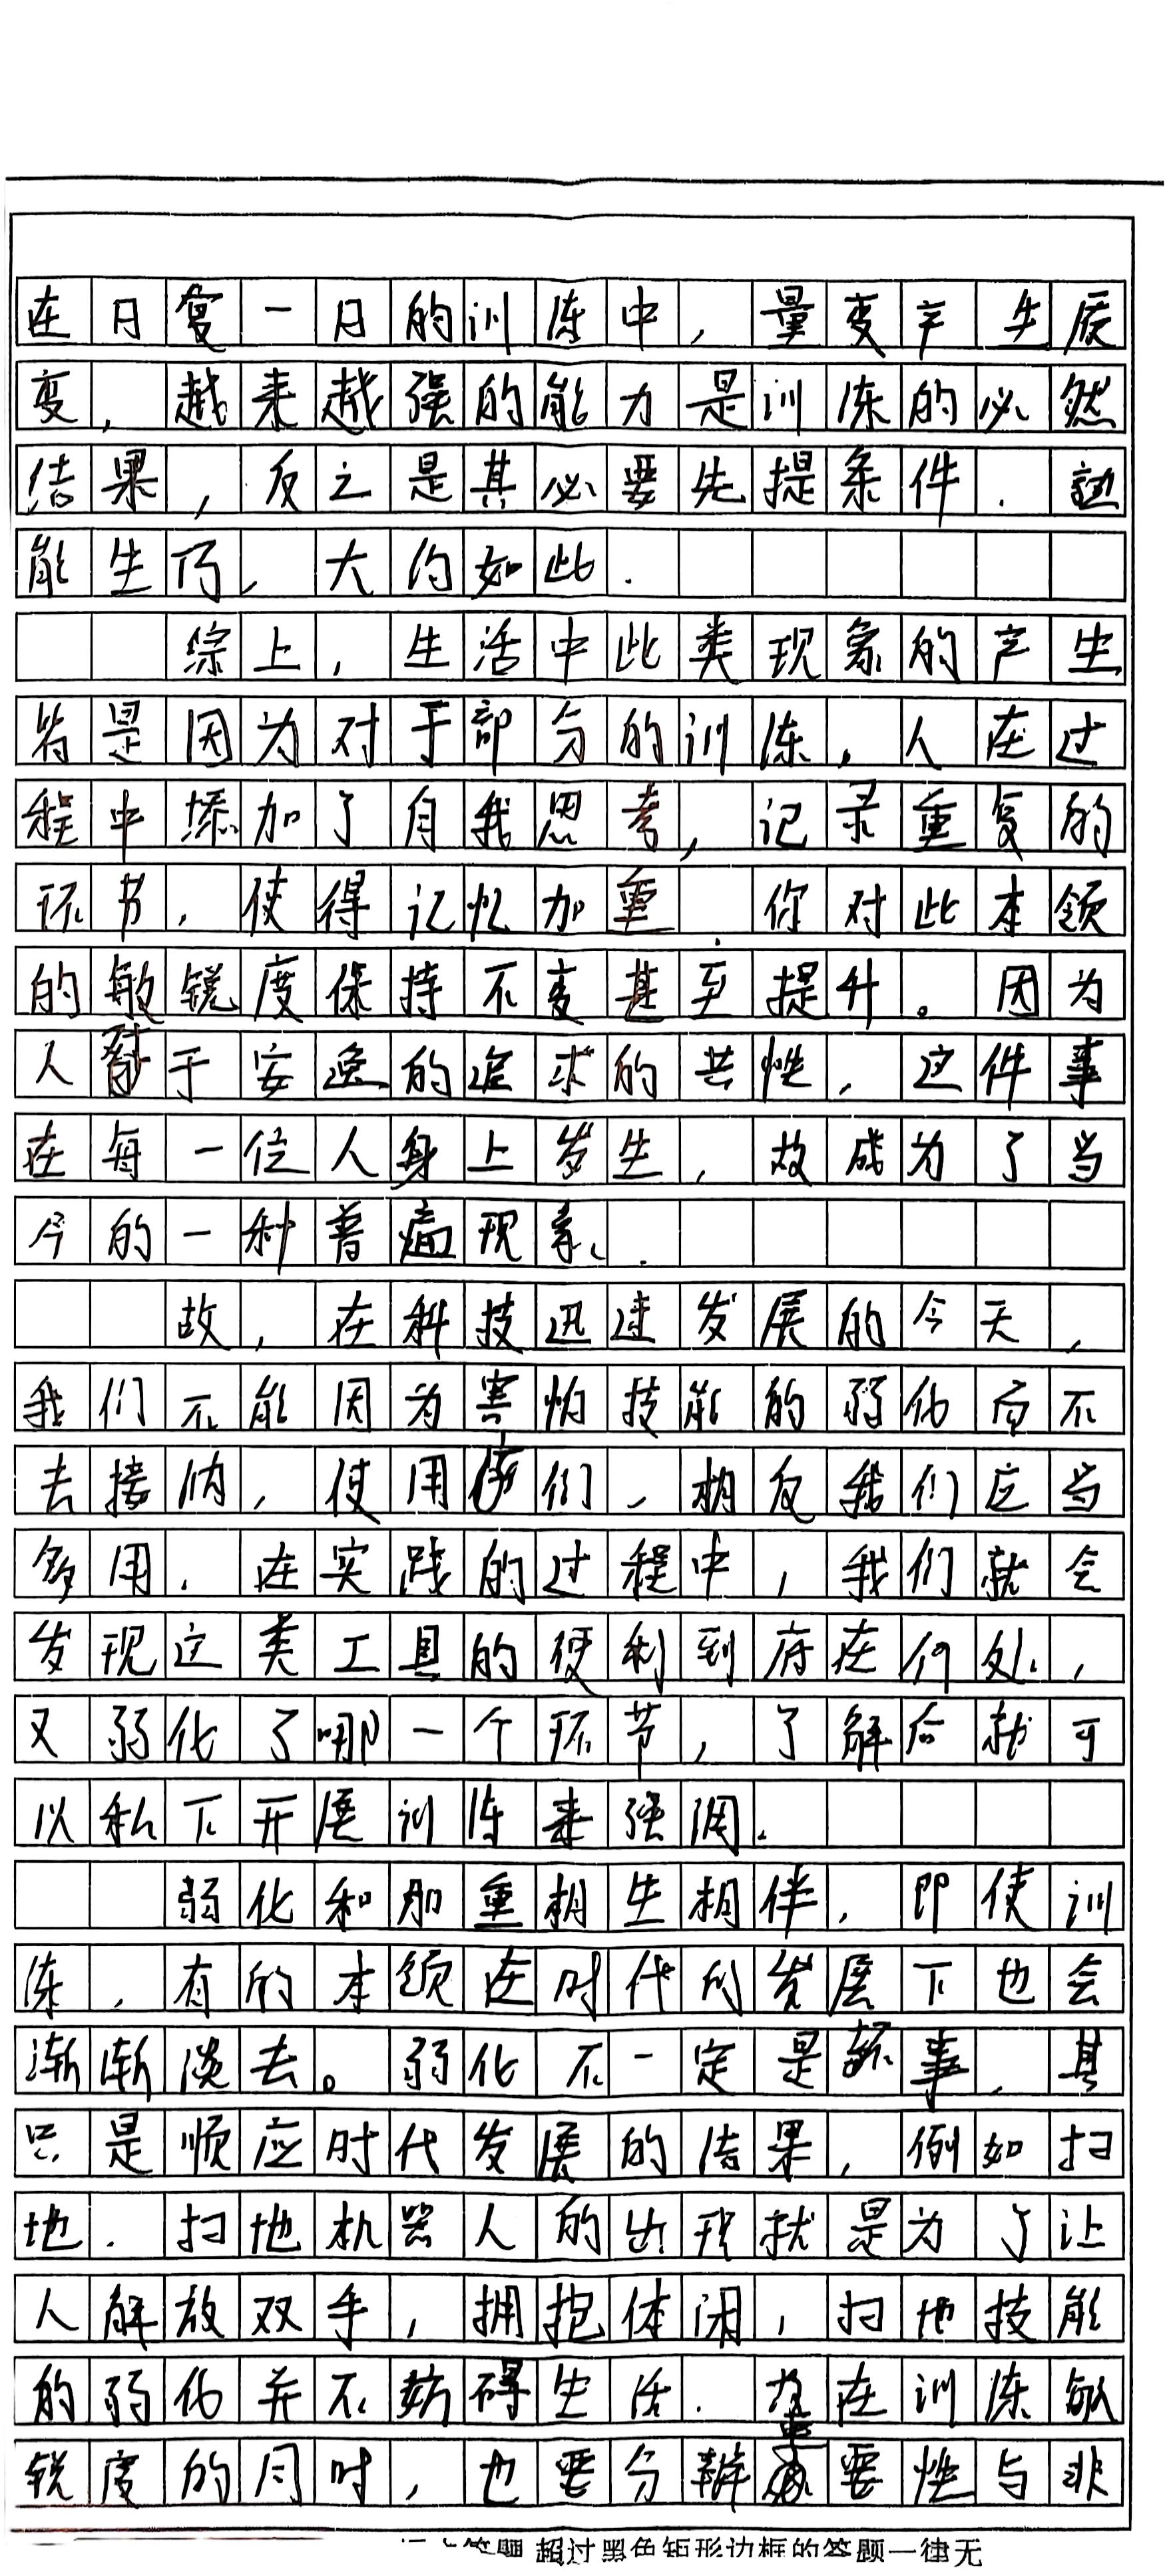 在日复一日的训练中，量变产生质
变，越来越强的能力是训练的必然
结果，反之是其必要先提条件．熟
能生巧，大约如此．
综上，生活中此类现象的产生
将是因为对于部分的训练，人在过
程中添加了自我思考，记录重复的
环节，使得记忆加重．你对此本领
的敏锐度保持不变甚至提升。因为
人对于安逸的追求的共性，这件事
在每一位人身上发生，故成为了当
今的一种普遍现象．
故，在科技迅速发展的今天，
我们不能因为害怕技能的弱化而不
去接纳，使用他们，相反我们应当
多用．在实践的过程中，我们就会
发现这类工具的便利到底在何处，
又弱化了哪一个环节，了解后就可
以私下开展训练来强调．
弱化和加重相生相伴，即使训
练，有的本领在时代的发展下也会
渐渐淡去。弱化不一定是坏事，其
只是顺应时代发展的结果，例如扫
地．扫地机器人的出现就是为了让
人解放双手，拥抱休闲，扫地技能
的弱化并不妨碍生活．在训练敏
锐度的同时，也要分辨重要性与非
超过黑色矩形边框的答题一律无